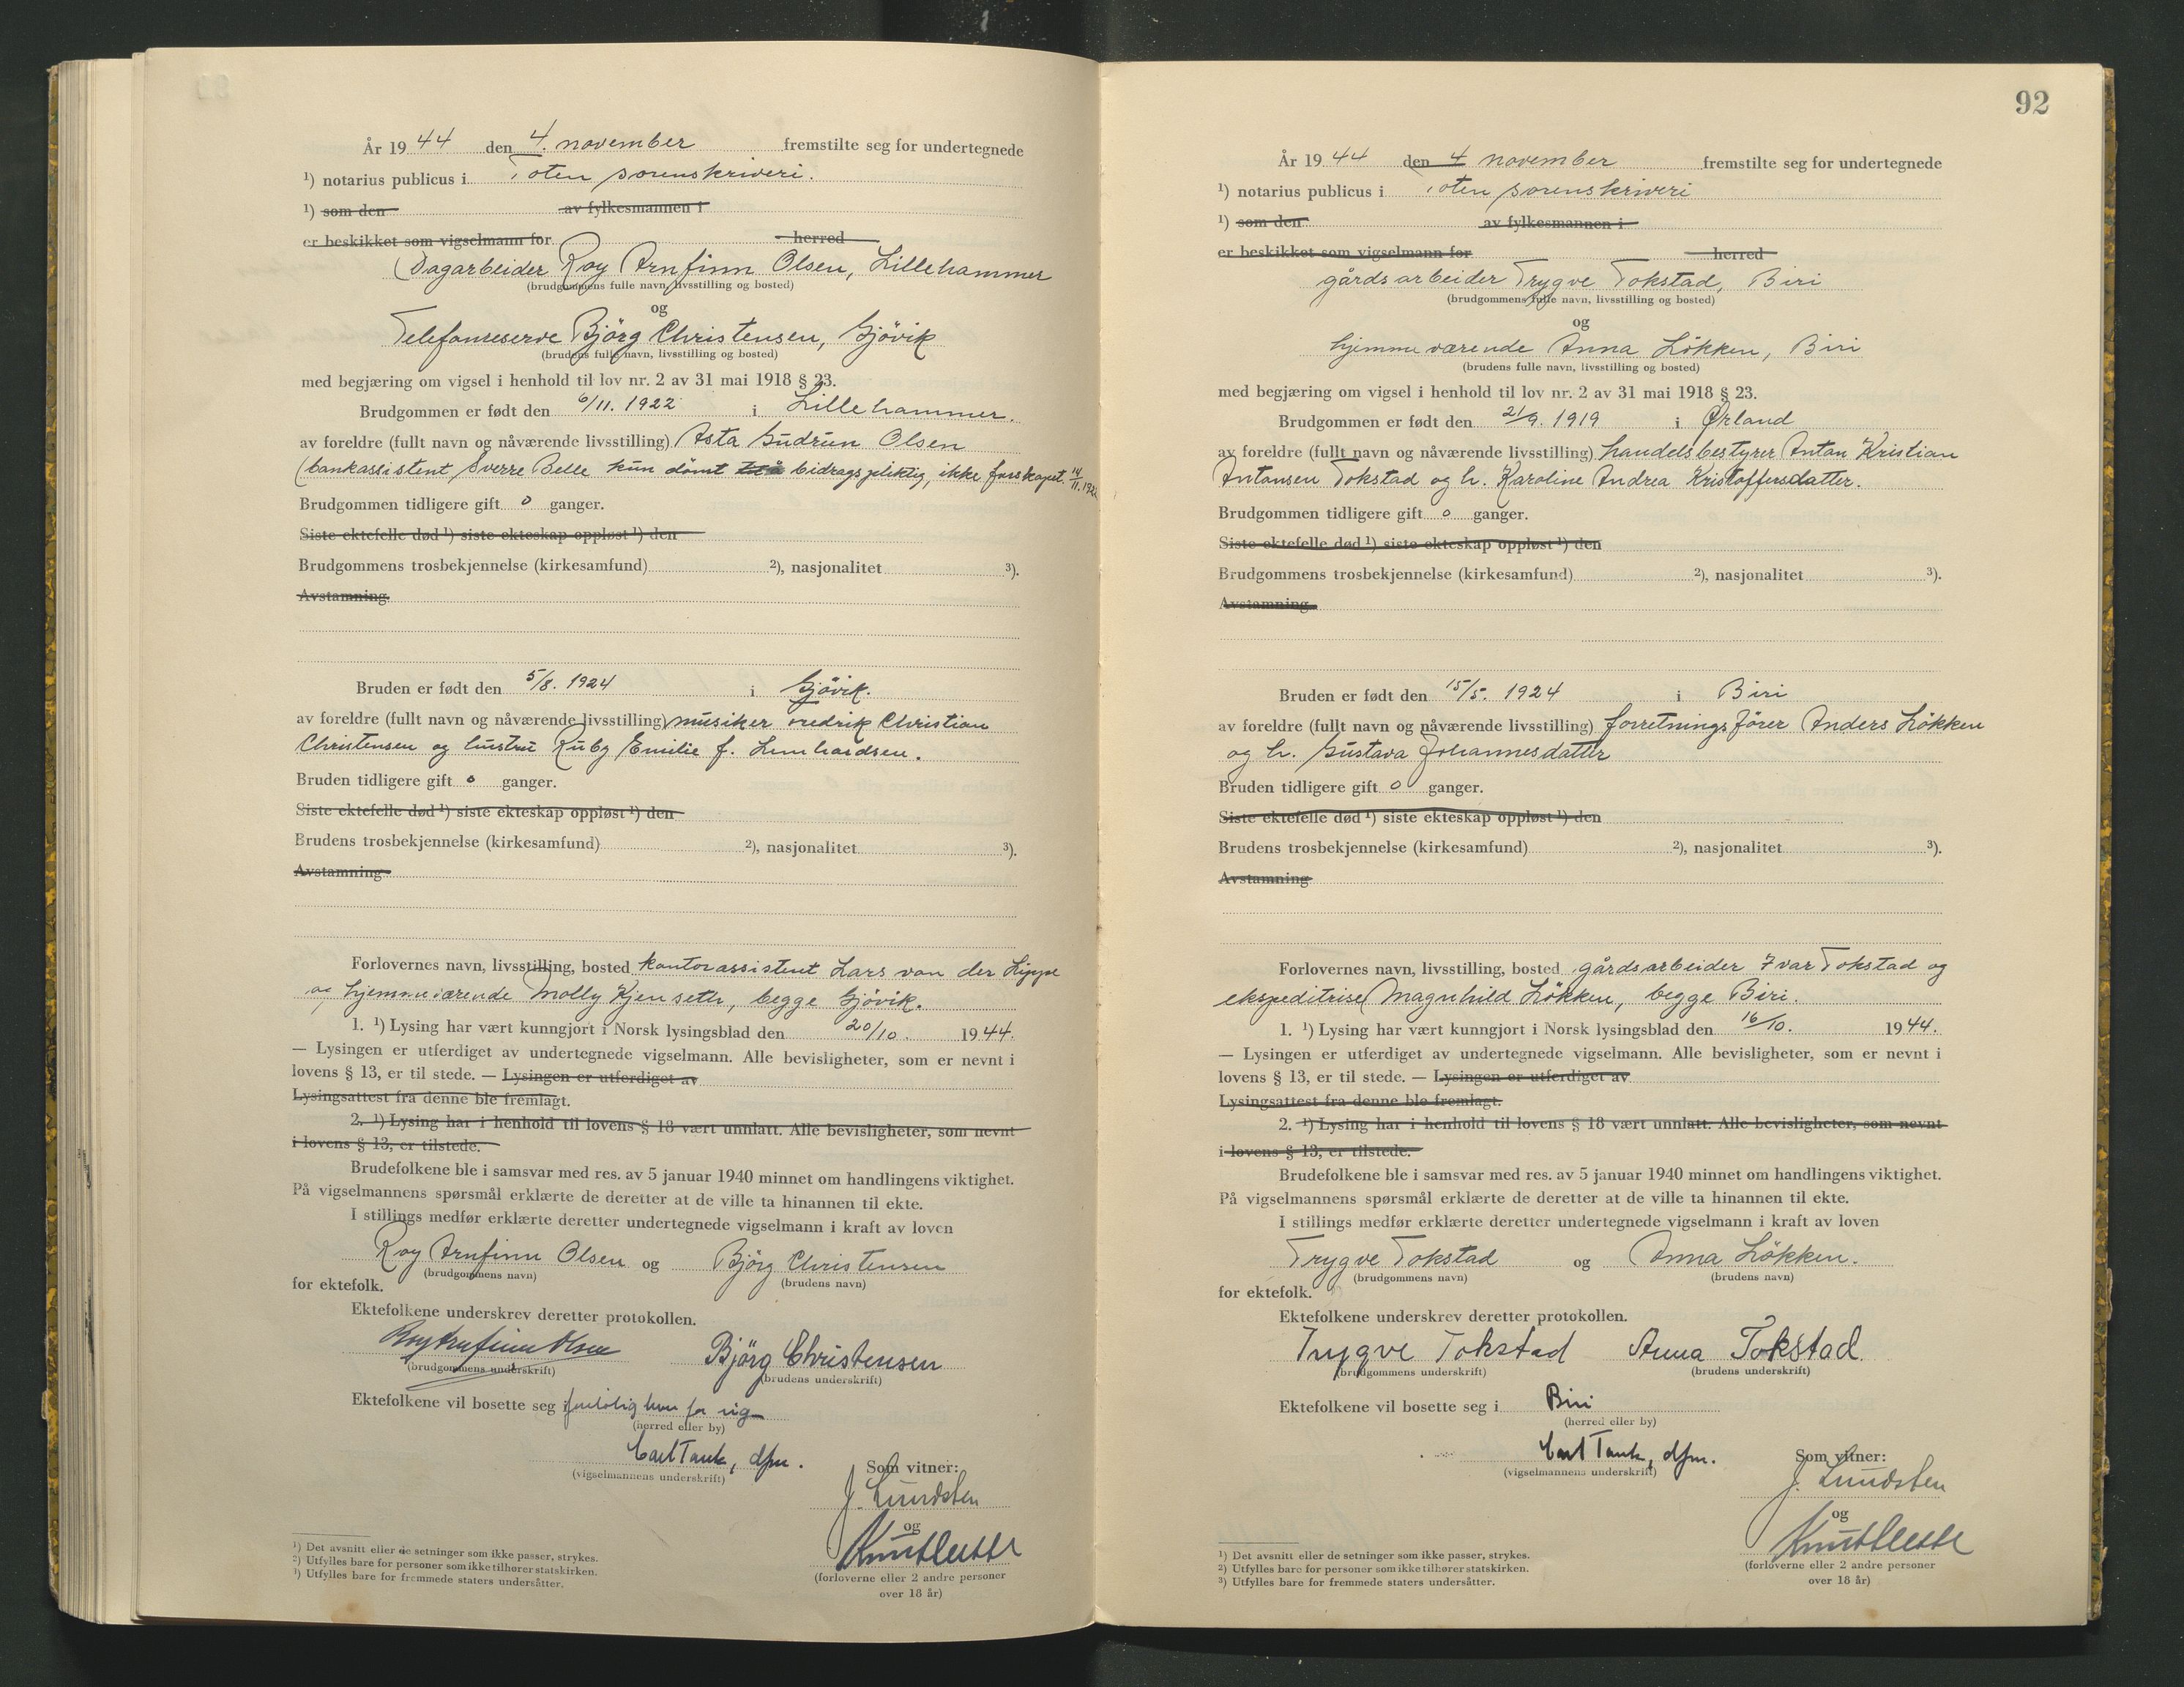 År 1944 den 4. november fremstilte seg for undertegnede
¹) notarius publicus i Toten sorenskriveri.
¹) som den av fylkesmannen i
er beskikket som vigselmann for herred
Dagarbeider Roy Arnfinn Olsen, Lillehammer
(brudgommens fulle navn, livsstilling og bosted)
og
Björg Christensen, Gjövik
(brudens fulle navn, livsstilling og bosted)
med begjæring om vigsel i henhold til lov nr. 2 av 31 mai 1918 § 23.
Brudgommen er født den 6/11. 1922 i Lillehammer.
av foreldre (fullt navn og nåværende livsstilling) Asta Gudrun Olsen
(bankassistent Sverre Belle kun dömt bidragspliktig, ikke farskapet. 14/11.
Brudgommen tidligere gift 0 ganger.
Siste ektefelle død ¹) siste ekteskap oppløst ¹) den
Brudgommens trosbekjennelse (kirkesamfund) ²), nasjonalitet ³).
Avstamning
Bruden er født den 5/8. 1924 i Gjövik.
av foreldre (fullt navn og nåværende livsstilling) musiker Fredrik Christian
Christensen og hustru Ruby Emilie f. Lenhardsen.
Bruden tidligere gift 0 ganger.
Siste ektefelle død ¹) siste ekteskap oppløst ¹) den
Brudens trosbekjennelse (kirkesamfund) ²), nasjonalitet ³).
Avstamning
Forlovernes navn, livsstilling, bosted kontorassistent Lars von der Lippe
og hjemmeværende Molly Kjenseth, begge Gjövik.
1. ¹) Lysing har vært kunngjort i Norsk lysingsblad den 20/10. 1944.
— Lysingen er utferdiget av undertegnede vigselmann. Alle bevisligheter, som er nevnt i
lovens § 13, er til stede. — Lysingen er utferdiget av
Lysingsattest fra denne ble fremlagt.
2. ¹) Lysing har i henhold til lovens § 18 vært unnlatt. Alle bevisligheter, som nevnt
i lovens § 13, er tilstede.
Brudefolkene ble i samsvar med res. av 5 januar 1940 minnet om handlingens viktighet.
På vigselmannens spørsmål erklærte de deretter at de ville ta hinannen til ekte.
I stillings medfør erklærte deretter undertegnede vigselmann i kraft av loven
Roy Arnfinn Olsen og Björg Christensen
(brudgommens navn) (brudens navn)
for ektefolk.
Ektefolkene underskrev deretter protokollen.
Roy Arnfinn Olsen Björg Christensen
(brudgommens underskrift) (brudens underskrift)
Ektefolkene vil bosette seg i foreløbig hver for sig
(herred eller by)
Carl Tank, dfm.
(vigselmannens underskrift)
Som vitner:
J. Lundsten
og
Knut
(forloverne eller 2 andre personer
over 18 år)
¹) Det avsnitt eller de setninger som ikke passer, strykes.
²) Utfylles bare for personer som ikke tilhører statskirken.
³) Utfylles bare for fremmede staters undersåtter.
92
År 1944 den 4 november fremstilte seg for undertegnede
¹) notarius publicus i Toten sorenskriveri
¹) som den av fylkesmannen i
er beskikket som vigselmann for herred
gårdsarbeider Trygve Tokstad, Biri
(brudgommens fulle navn, livsstilling og bosted)
og
hjemmeværende Anna Lökken, Biri
(brudens fulle navn, livsstilling og bosted)
med begjæring om vigsel i henhold til lov nr. 2 av 31 mai 1918 § 23.
Brudgommen er født den 21/9. 1919 i Ørland
av foreldre (fullt navn og nåværende livsstilling) handelsbestyrer Anton Kristian
Antonsen Tokstad og h. Karoline Andrea Kristoffersdatter.
Brudgommen tidligere gift 0 ganger.
Siste ektefelle død ¹) siste ekteskap oppløst ¹) den
Brudgommens trosbekjennelse (kirkesamfund) ²), nasjonalitet ³).
Avstamning
Bruden er født den 15/5. 1924 i Biri
av foreldre (fullt navn og nåværende livsstilling) forretningsförer Anders Lökken
og h. Gustava Johannesdatter
Bruden tidligere gift 0 ganger.
Siste ektefelle død ¹) siste ekteskap oppløst ¹) den
Brudens trosbekjennelse (kirkesamfund) ²), nasjonalitet ³).
Avstamning
Forlovernes navn, livsstilling, bosted gårdsarbeider Ivar Tokstad og
ekspeditrise Magnhild Lökken, begge Biri.
1. ¹) Lysing har vært kunngjort i Norsk lysingsblad den 16/10. 1944.
— Lysingen er utferdiget av undertegnede vigselmann. Alle bevisligheter, som er nevnt i
lovens § 13, er til stede. — Lysingen er utferdiget av
Lysingsattest fra denne ble fremlagt.
2. ¹) Lysing har i henhold til lovens § 18 vært unnlatt. Alle bevisligheter, som nevnt
i lovens § 13, er tilstede.
Brudefolkene ble i samsvar med res. av 5 januar 1940 minnet om handlingens viktighet.
På vigselmannens spørsmål erklærte de deretter at de ville ta hinannen til ekte.
I stillings medfør erklærte deretter undertegnede vigselmann i kraft av loven
Trygve Tokstad og Anna Lökken.
(brudgommens navn) (brudens navn)
for ektefolk.
Ektefolkene underskrev deretter protokollen.
Trygve Tokstad Anna Tokstad
(brudgommens underskrift) (brudens underskrift)
Ektefolkene vil bosette seg i Biri
(herred eller by)
Carl Tank, dfm.
(vigselmannens underskrift)
Som vitner:
J. Lundsten
og
Knut
(forloverne eller 2 andre personer
over 18 år)
¹) Det avsnitt eller de setninger som ikke passer, strykes.
²) Utfylles bare for personer som ikke tilhører statskirken.
³) Utfylles bare for fremmede staters undersåtter.